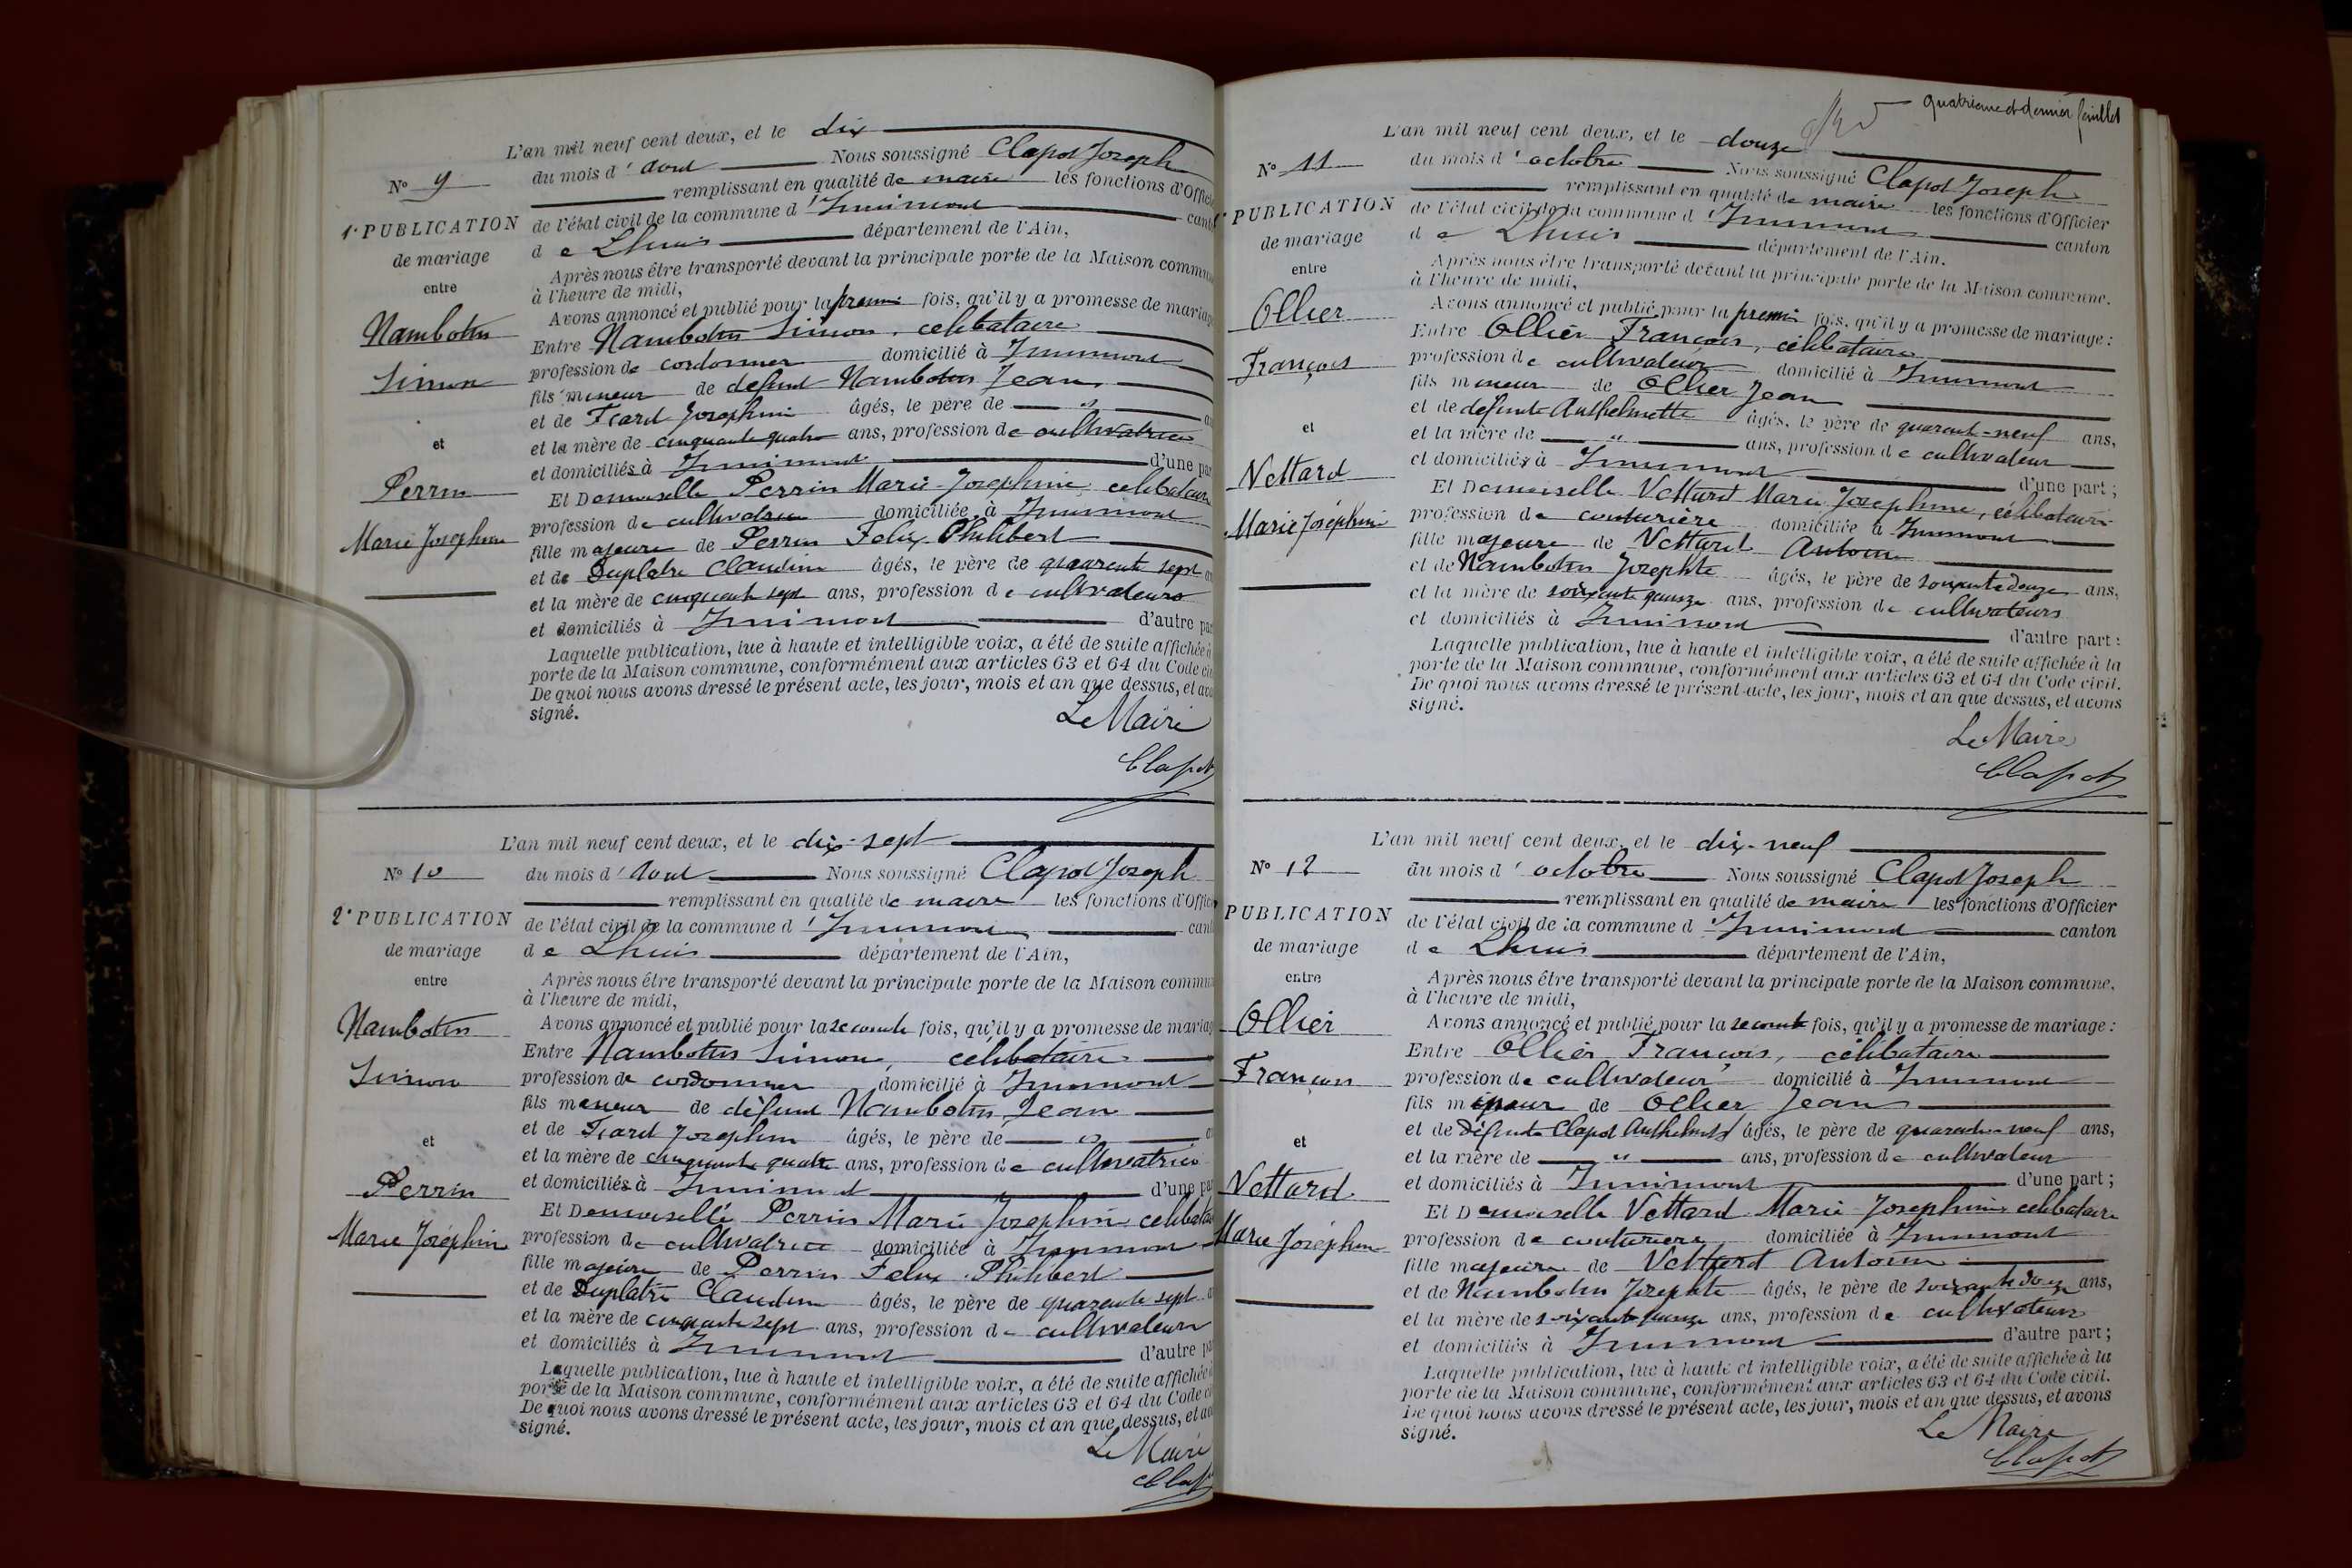 L'an mil neuf cent deux, et le dix
N° 9
du mois d'aout Nous soussigné Clapot Joseph
remplissant en qualité de maire les fonctions d'Offici
1e PUBLICATION
de l'état civil de la commune d'Innimont cant
de mariage
de Lhuis département de l'Ain,
entre
Après nous être transporté devant la principale porte de la Maison commun
à l'heure de midi,
Avons annoncé et publié pour la premiè fois, qu'il y a promesse de mariag
Nambotin
Entre Nambotin Simon, célibataire
Simon
profession de cordonnier domicilié à Innimont
fils mineur de défunt Nambotin Jean
et de Ficard Josephine âgés, le père de " a
et
et la mère de cinquante quatre ans, profession de cultivatrice
et domiciliés à Innimont d'une par
Perrin
Et Demoiselle Perrin Marie Josephine célibataire
Marie Josephine
profession de cultivatrice domiciliée à Innimont
fille majeure de Perrin Felix Philibert
et de Duplatre Claudine âgés, le père de quarente sept an
et la mère de cinquante sept ans, profession de cultivateurs
et domiciliés à Innimont d'autre par
Laquelle publication, lue à haute et intelligible voix, a été de suite affichée à
porte de la Maison commune, conformément aux articles 63 et 64 du Code civ
De quoi nous avons dressé le présent acte, les jour, mois et an que dessus, et avo
signé.
Le Maire
Clapot
L'an mil neuf cent deux, et le dix-sept
N° 10
du mois d'aout Nous soussigné Clapot Joseph
remplissant en qualité de maire les fonctions d'Offici
2e PUBLICATION
de l'état civil de la commune d'Innimont cant
de mariage
de Lhuis département de l'Ain,
entre
Après nous être transporté devant la principale porte de la Maison commun
à l'heure de midi,
Nambotin
Avons annoncé et publié pour la seconde fois, qu'il y a promesse de mariag
Entre Nambotin Simon, célibataire
Simon
profession de cordonnier domicilié à Innimont
fils mineur de défunt Nambotin Jean
et de Ficard Josephine âgés, le père de " a
et
et la mère de cinquante quatre ans, profession de cultivatrice
et domiciliés à Innimont d'une par
Perrin
Et Demoiselle Perrin Marie Josephine célibatai
Marie Joséphine
profession de cultivatrice domiciliée à Innimont
fille majeure de Perrin Felix Philibert
et de Duplatre Claudine âgés, le père de quarente sept a
et la mère de cinquante sept ans, profession de cultivateurs
et domiciliés à Innimont d'autre pa
Laquelle publication, lue à haute et intelligible voix, a été de suite affichée à
porte de la Maison commune, conformément aux articles 63 et 64 du Code ci
De quoi nous avons dressé le présent acte, les jour, mois et an que dessus, et av
signé.
Le Maire
Clapot
quatrième et dernier feuillet
L'an mil neuf cent deux, et le douze
N° 11
du mois d'octobre Nous soussigné Clapot Joseph
remplissant en qualité de maire les fonctions d'Officier
PUBLICATION
de l'état civil de la commune d'Innimont canton
de mariage
de Lhuis département de l'Ain.
entre
Après nous être transporté devant la principale porte de la Maison commune.
à l'heure de midi,
Avons annoncé et publié pour la premiè fois, qu'il y a promesse de mariage :
Ollier
Entre Ollier François, célibataire
François
profession de cultivateur domicilié à Innimont
fils mineur de Ollier Jean
et de défunte Anthelmette âgés, le père de quarante-neuf ans,
et
et la mère de " ans, profession de cultivateur
et domiciliés à Innimont d'une part ;
Vettard
Et Demoiselle Vettard Marie Josephine, célibataire
Marie Joséphine
profession de couturière domiciliée à Innimont
fille majeure de Vettard Antoine
et de Nambotin Josephte âgés, le père de soixante douze ans,
et la mère de soixante quinze ans, profession de cultivateurs
et domiciliés à Innimont d'autre part :
Laquelle publication, lue à haute et intelligible voix, a été de suite affichée à la
porte de la Maison commune, conformément aux articles 63 et 64 du Code civil.
De quoi nous avons dressé le présent acte, les jour, mois et an que dessus, et avons
signé.
Le Maire
Clapot
L'an mil neuf cent deux, et le dix-neuf
N° 12
du mois d'octobre Nous soussigné Clapot Joseph
remplissant en qualité de maire les fonctions d'Officier
PUBLICATION
de l'état civil de la commune d'Innimont canton
de mariage
de Lhuis département de l'Ain,
entre
Après nous être transporté devant la principale porte de la Maison commune.
à l'heure de midi,
Ollier
Avons annoncé et publié pour la seconde fois, qu'il y a promesse de mariage :
Entre Ollier François, célibataire
François
profession de cultivateur domicilié à Innimont
fils mineur de Ollier Jean
et de Défunte Clapot Anthelmette âgés, le père de quarante neuf ans,
et
et la mère de " ans, profession de cultivateur
et domiciliés à Innimont d'une part ;
Vettard
Et Demoiselle Vettard Marie Josephine célibataire
Marie Joséphine
profession de couturière domiciliée à Innimont
fille majeure de Vettard Antoine
et de Nambotin Josephte âgés, le père de soixante douze ans,
et la mère de soixante quinze ans, profession de cultivateurs
et domiciliés à Innimont d'autre part ;
Laquelle publication, lue à haute et intelligible voix, a été de suite affichée à la
porte de la Maison commune, conformément aux articles 63 et 64 du Code civil.
De quoi nous avons dressé le présent acte, les jour, mois et an que dessus, et avons
signé.
Le Maire
Clapot